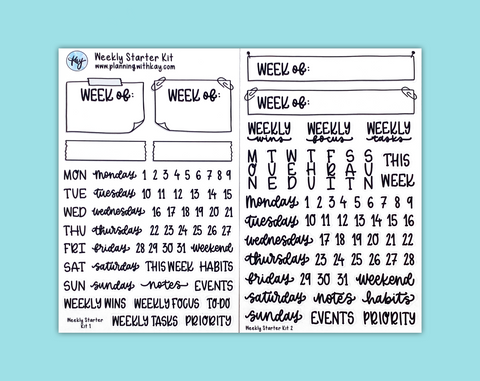 Kay
Weekly Starter Kit
www.planningwithkay.com
WEEK of: WEEK of:
MON monday 1 2 3 4 5 6 7 8 9
TUE tuesday 10 11 12 13 14 15
WED wednesday 16 17 18 19 20 21
THU thursday 22 23 24 25 26 27
FRI friday 28 29 30 31 weekend
SAT saturday THIS WEEK HABITS
SUN sunday notes EVENTS
WEEKLY WINS WEEKLY FOCUS TO-DO
Weekly Starter
Kit 1
WEEKLY TASKS PRIORITY
WEEK of:
WEEK of:
WEEKLY WEEKLY WEEKLY
wins focus tasks
M T W T F S S
O U E H R A U
N E D U I T N
THIS
WEEK
monday 1 2 3 4 5 6 7 8 9
tuesday 10 11 12 13 14 15 16
wednesday 17 18 19 20 21 22
thursday 23 24 25 26 27 28
friday 29 30 31 weekend
saturday notes habits
sunday EVENTS PRIORITY
Weekly Starter Kit 2